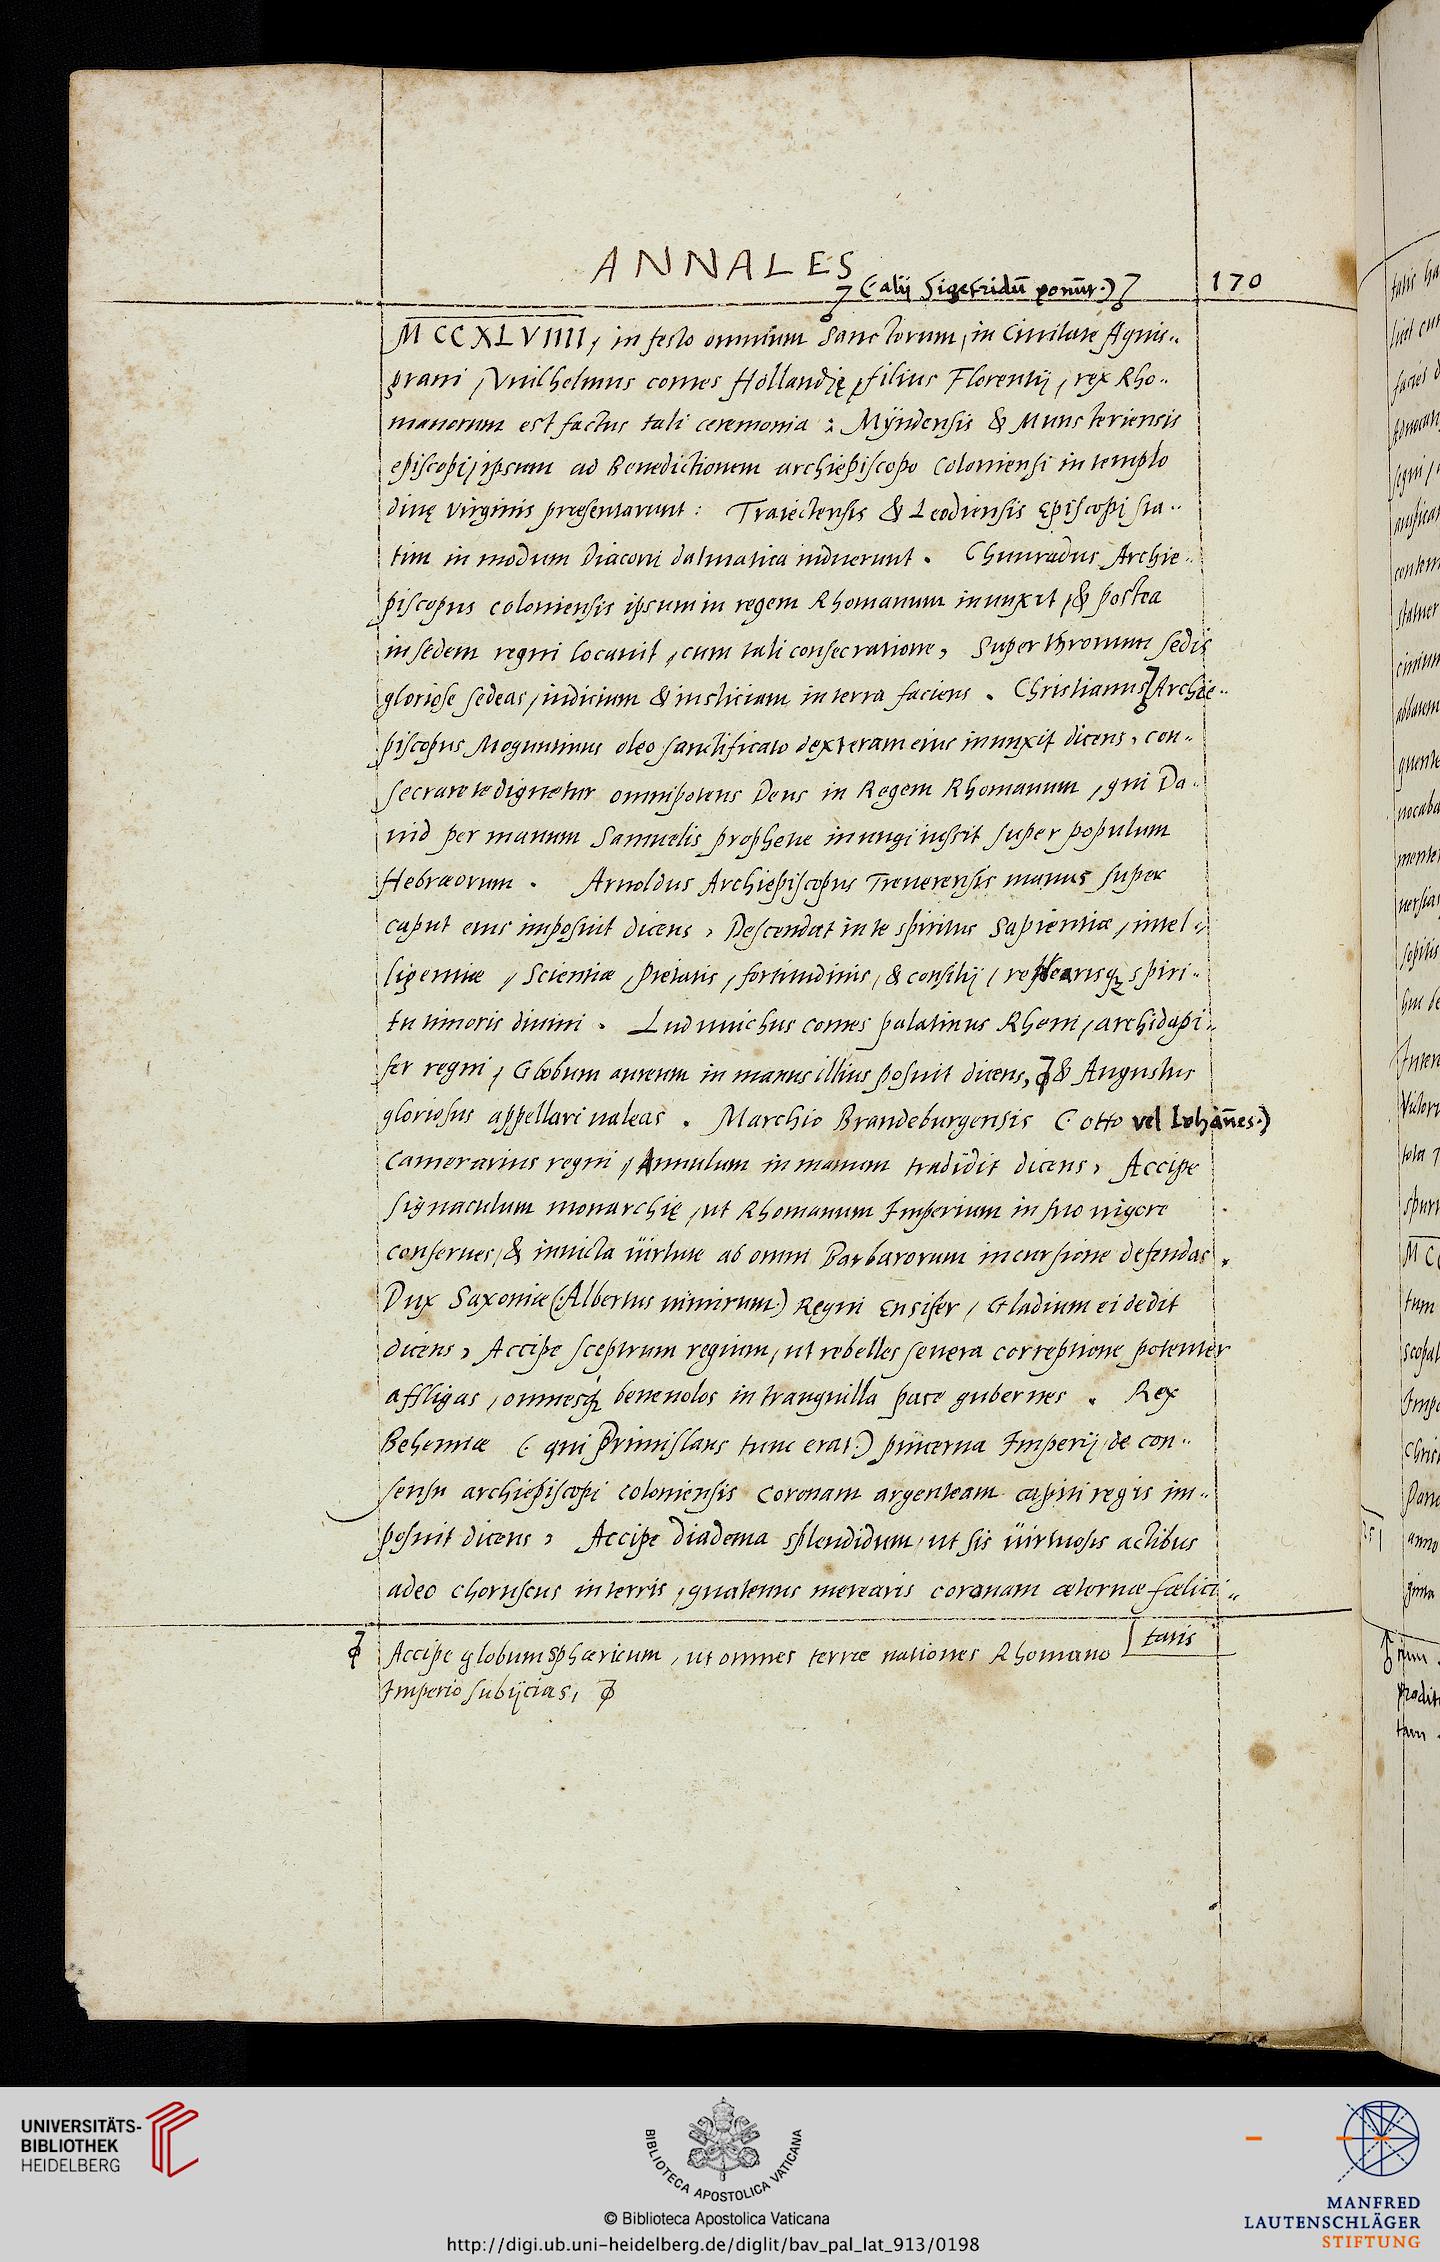 ANNALES
(· alij Sigefridū ponūt ·)
170
M CC XL VIIII, in festo omnium Sanctorum, in Ciuitate Aquis-
grani, Vuilhelmus comes Hollandię, filius Florentij, rex Rho-
manorum est factus tali ceremonia: Myndensis & Munsteriensis
episcopi, ipsum ad Benedictionem archiepiscopo Coloniensi in templo
diuę virginis pręsentarunt: Traiectensis & Leodiensis Episcopi sta-
tim in modum Diaconi dalmatica induerunt. Chunradus Archie-
piscopus coloniensis ipsum in regem Rhomanum inunxit, & postea
in sedem regni locauit, cum tali consecratione, Super thronum sedis
gloriose sedeas, iudicium & iusticiam in terra faciens. Christianus Archie-
piscopus Moguntinus oleo sanctificato dexteram eius inunxit dicens, con-
secrare te dignetur omnipotens Deus in Regem Rhomanum, qui Da-
uid per manum Samuelis prophetae inungi iussit super populum
Hebræorum. Arnoldus Archiepiscopus Treuerensis manus super
caput eius imposuit dicens, Descendat in te spiritus Sapientiæ, intel-
ligentiæ, Scientiæ, Pietatis, fortitudinis, & consilij, replearisq; spiri-
tu timoris diuini. Luduuichus comes palatinus Rheni, archidapi-
fer regni, Globum aureum in manus illius posuit dicens, & Augustus
gloriosus appellari ualeas. Marchio Brandeburgensis (· otto vel Iohān̄es ·)
Camerarius regni, Annulum in manum tradidit dicens, Accipe
signaculum monarchię, ut Rhomanum Imperium in suo uigore
conserues, & inuicta üirtute ab omni Barbarorum incursione defendas.
Dux Saxoniæ (· Albertus nimirum ·) Regni Ensifer, Gladium ei dedit
dicens, Accipe sceptrum regium, ut rebelles seuera correptione potenter
affligas, omnesq; beneuolos in tranquilla pace gubernes. Rex
Behemiæ (· qui Primislaus tunc erat ·) pincerna Imperij, de con-
sensu archiepiscopi coloniensis Coronam argenteam capiti regis im-
posuit dicens, Accipe diadema splendidum, ut sis üirtuosis actibus
adeo choruscus in terris, quatenus merearis coronam æternæ fælici-
tatis
Accipe globum sphæricum, ut omnes terræ nationes Rhomano
Imperio subijcias,
UNIVERSITÄTS-
BIBLIOTHEK
HEIDELBERG
BIBLIOTECA APOSTOLICA VATICANA
© Biblioteca Apostolica Vaticana
http://digi.ub.uni-heidelberg.de/diglit/bav_pal_lat_913/0198
MANFRED
LAUTENSCHLÄGER
STIFTUNG